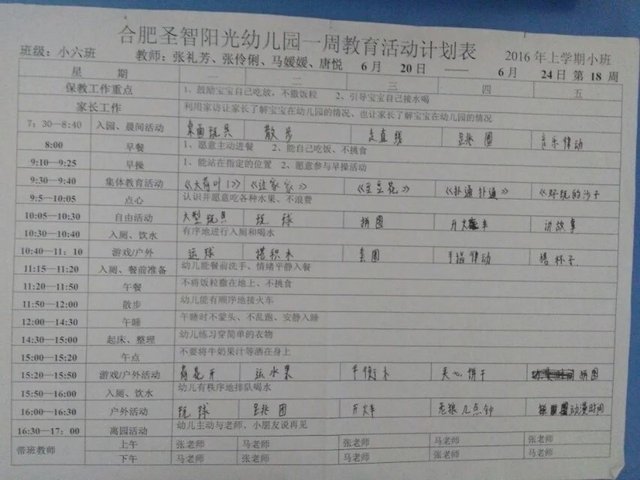 合肥圣智阳光幼儿园一周教育活动计划表
班级：小六班 教师：张礼芳、张伶俐、马媛媛、唐悦 6月 20日 —— 6月 24日 第18周 2016年上学期小班
星 期 一 二 三 四 五
保教工作重点 1、鼓励宝宝自己吃放，不撒饭粒 2、引导宝宝自己接水喝
家长工作 利用家访让家长了解宝宝在幼儿园的情况、也让家长了解宝宝在幼儿园的情况
7：30—8:40 入园、晨间活动 桌面玩具 散步 走直线 音乐律动
8:00 早餐 1、愿意主动进餐 2、能自己吃饭、不挑食
9:10—9:25 早操 1、能站在指定的位置 2、愿意参与早操活动
9:30—9:40 集体教育活动 《大荷叶》 《过家家》 《豆豆花》 《扑通扑通》 《好玩的沙子
9:5—10:05 点心 认识并愿意吃各种水果、不浪费
10:05—10:30 自由活动 大型玩具 玩球 拼图 开火车 讲故事
10:30—10:40 入厕、饮水 有序地进行入厕和喝水
10:40—11：10 游戏/户外 运球 搭积木 套圈 手指律动 搭杯子
11:15—11:20 入厕、餐前准备 幼儿能餐前洗手、情绪平静入餐
11:20—11:50 午餐 不将饭粒撒在地上、不挑食
11:50—12:00 散步 幼儿能有顺序地接火车
12:00—14:30 午睡 午睡时不蒙头、不乱跑、安静入睡
14:30—15:00 起床、整理 幼儿练习穿简单的衣物
15:00—15:20 午点 不要将牛奶果汁等洒在身上
15:20—15:50 游戏/户外活动 荷花开 运水果 平衡木 夹心饼干 拼图
15:50—16:00 入厕、饮水 幼儿有秩序地排队喝水
16:00—16:30 户外活动 玩球 开火车 老狼几点钟 动漫时间
16:30—17：00 离园活动 幼儿主动与老师、小朋友说再见
带班教师 上午 张老师 马老师 张老师 马老师 张老师
下午 马老师 张老师 马老师 张老师 马老师